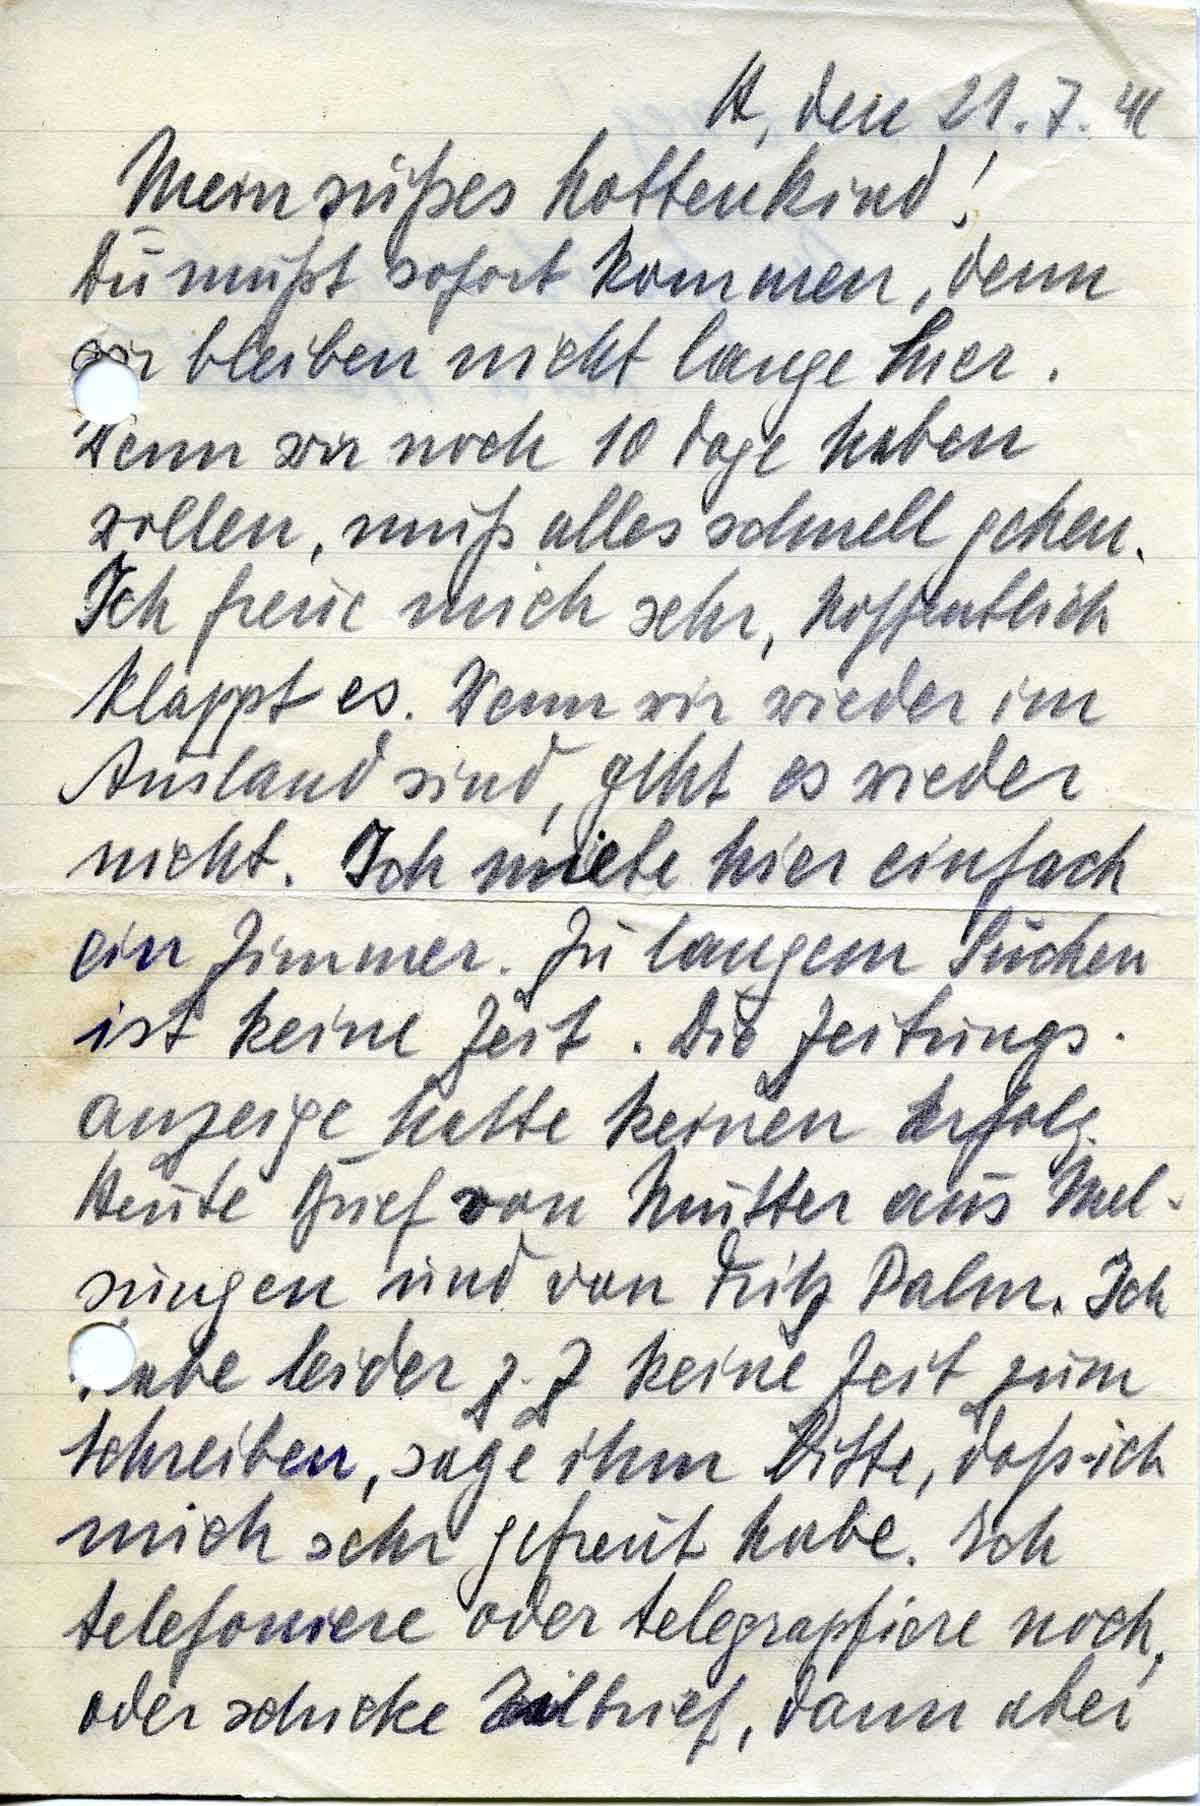 H, den 21.7.41
Mein süßes Mottenkind!
Du mußt sofort kommen, denn
wir bleiben nicht lange hier.
Wenn wir noch 10 Tage haben
wollen, muß alles schnell gehen.
Ich freue mich sehr, hoffentlich
klappt es. Wenn wir wieder im
Ausland sind, geht es wieder
nicht. Ich miete hier einfach
ein Zimmer. Zu langem Suchen
ist keine Zeit. Die Zeitungs-
anzeige hatte keinen Erfolg.
Heute Brief von Mutter aus Mel-
sungen und von Fritz Palm. Ich
habe leider z.Z keine Zeit zum
schreiben, sage ihm bitte, daß ich
mich sehr gefreut habe. Ich
telefoniere oder telegrapfiere noch,
oder schicke Eilbrief, dann aber